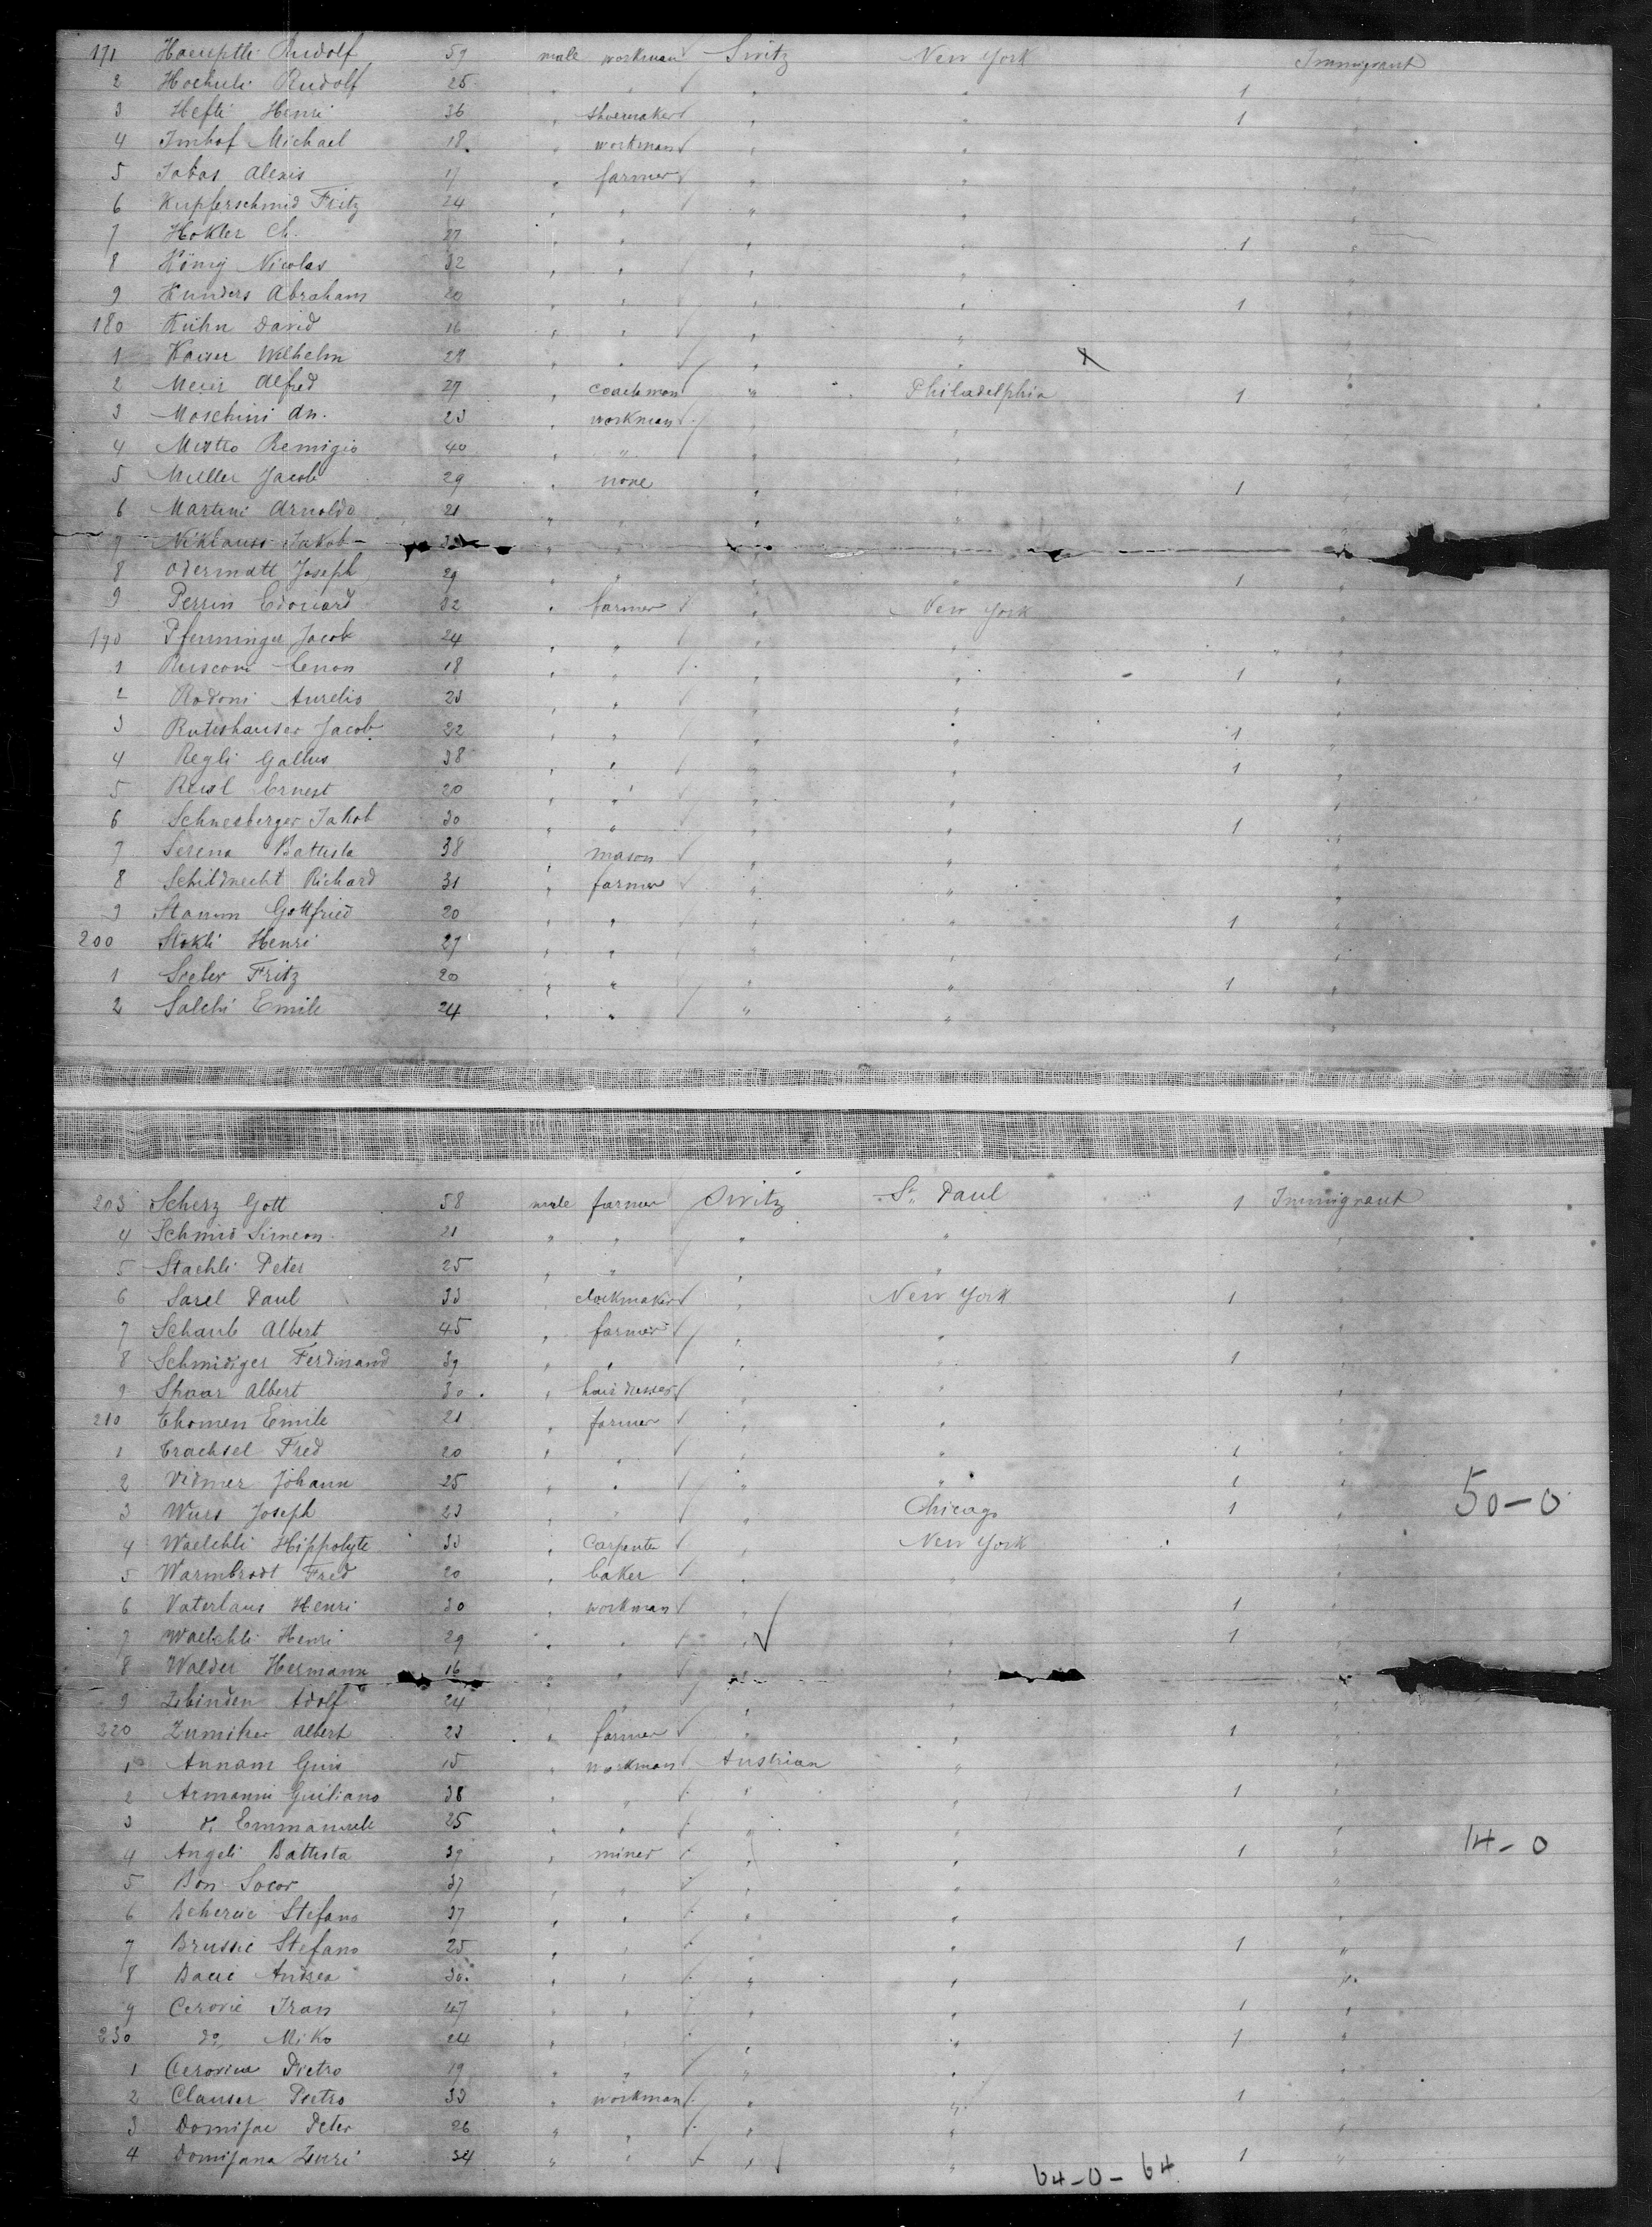 171 Haeuptli Rudolf 59 male workman Switz New York Immigrant
2 Hochuli Rudolf 25 " " " " 1 "
3 Hefti Henri 36 " shoemaker " " 1 "
4 Imhof Michael 18 " workman " " "
5 Alexis 17 " farmer " " "
6 Kupferschmid Fritz 24 " " " " "
7 Hokler Ch. 27 " " " " 1 "
8 König Nicolas 32 " " " " "
9 Kunders Abraham 20 " " " " 1 "
180 Kühn David 16 " " " " "
1 Kaiser Wilhelm 28 " " " " X "
2 Meier Alfred 27 " coachman " Philadelphia 1 "
3 Moschini An. 23 " workman " " "
4 Remigio 40 " " " " "
5 Müller Jacob 29 " none " " 1 "
6 Martini Arnoldo 21 " " " " "
7 Niklauss Jakob " " " "
8 Odermatt Joseph 29 " " " " 1 "
9 Perrin Edouard 32 " farmer " New York "
190 Pfenninger Jacob 24 " " " " "
1 Rusconi 18 " " " " 1 "
2 Rodoni Aurelio 23 " " " " "
3 Rutishauser Jacob 22 " " " " 1 "
4 Regli Gallus 38 " " " " 1 "
5 Ernest 20 " " " " "
6 Schneeberger Jakob 30 " " " " 1 "
7 Serena Battista 38 " mason " " "
8 Schildnecht Richard 31 " farmer " " "
9 Stamm Gottfried 20 " " " " 1 "
200 Stokli Henri 27 " " " " "
1 Fritz 20 " " " " 1 "
2 Salchi Emile 24 " " " " "
203 Scherz Gott 58 male farmer Switz St. Paul 1 Immigrant
4 Schmid Simeon 21 " " " " "
5 Staehli Peter 25 " " " " "
6 Sarel Paul 33 " clockmaker " New York 1 "
7 Schaub Albert 45 " farmer " " "
8 Schmidiger Ferdinand 39 " " " " 1 "
9 Spaar Albert 30 " hairdresser " " "
210 Thomen Emile 21 " farmer " " "
1 Trachsel Fred 20 " " " " 1 "
2 Vidmer Johann 25 " " " " 1 " 50-0
3 Joseph 23 " " " Chicago 1 "
4 Waelchli Hippolyte 33 " Carpenter " New York "
5 Warmbrodt Fred 20 " baker " " "
6 Vaterlaus Henri 30 " workman " " 1 "
7 Waelchli Henri 29 " " " " 1 "
8 Walder Hermann 16 " " " " "
9 Zbinden Adolf 24 " " " " "
220 Zumiker Albert 23 " farmer " " 1 "
1 15 " workman Austrian " "
2 Armanni Guiliano 38 " " " " 1 "
3 d. Emmanuele 25 " " " " "
4 Angeli Battista 39 " miner " " 1 " 14-0
5 Bon 37 " " " " "
6 Stefano 37 " " " " "
7 Brussic Stefano 25 " " " " 1 "
8 Bacic Andrea 30 " " " " "
9 Cerovic Ivan 47 " " " " 1 "
230 do Miko 24 " " " " 1 "
1 Pietro 19 " " " " "
2 Clauser Pietro 33 " workman " " 1 "
3 Domijac Peter 26 " " " " "
4 Domijana 34 " " " " 1 "
64-0-64